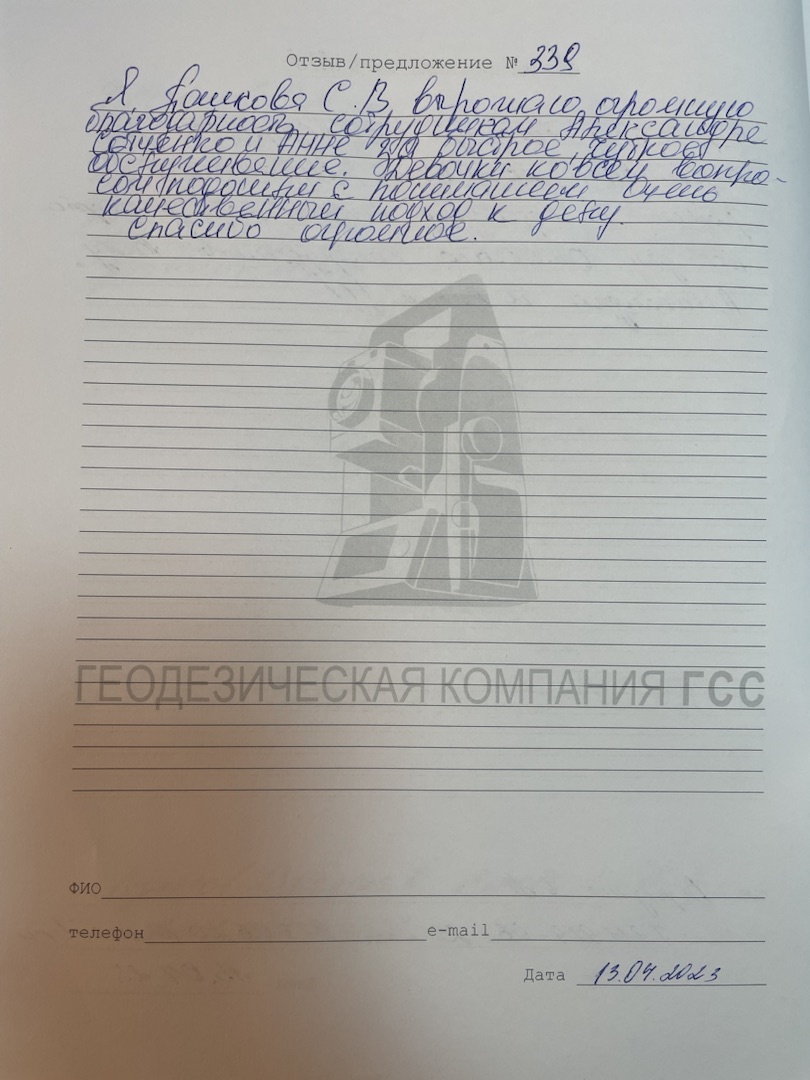 Отзыв/предложение № 339
Я, Пашкова С.В. выражаю огромную
благодарность сотрудникам Александре
и Анне за быстрое, чуткое
обслуживание. Девочки ко всем вопро-
сам подошли с пониманием очень
качественный подход к делу.
Спасибо огромное.
ГЕОДЕЗИЧЕСКАЯ КОМПАНИЯ ГСС
ФИО
телефон e-mail
Дата 13.04.2023